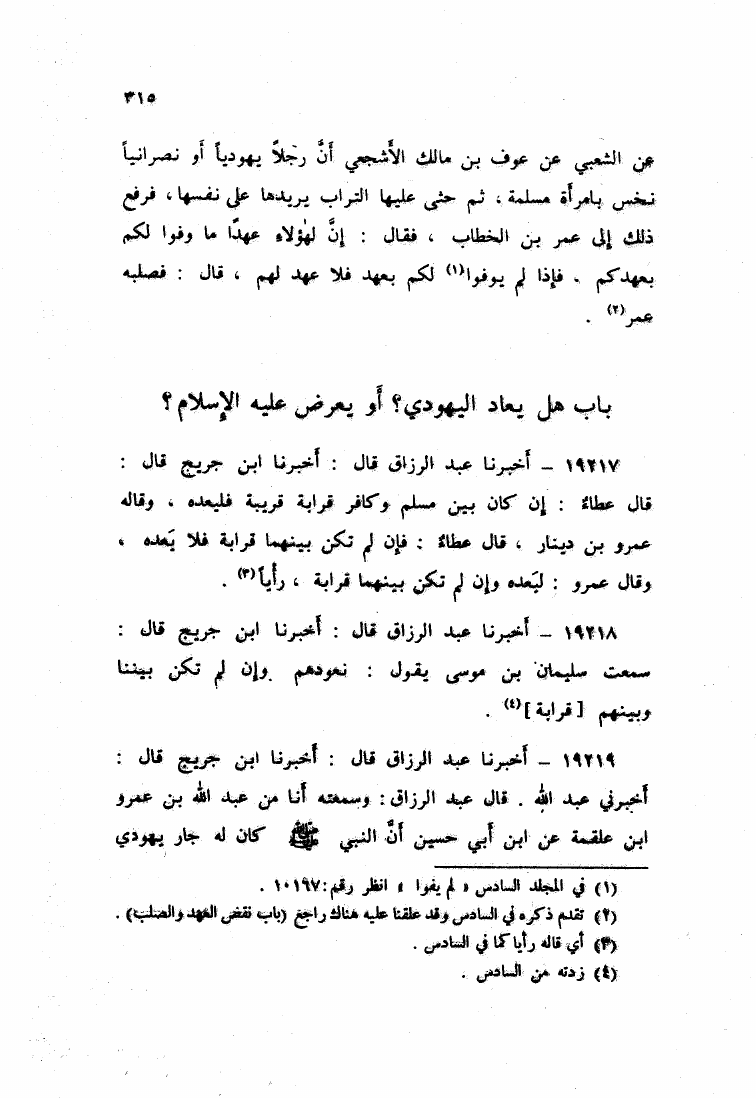 ٣١٥
عن الشعبي عن عوف بن مالك الأشجعي أنَّ رَجلاً يهودياً أو نصرانياً
نخس بامرأة مسلمة ، ثم حثى عليها التراب يريدها على نفسها ، فرفع
ذلك إلى عمر بن الخطاب ، فقال : إنَّ لهٰؤلاء عهدًا ما وفوا لكم
بعهدكم ، فإذا لم يوفوا(١) لكم بعهد فلا عهد لهم ، قال : فصلبه
عمر(٢) .
باب هل يعاد اليهودي؟ أو يعرض عليه الإسلام؟
١٩٢١٧ – أخبرنا عبد الرزاق قال : أخبرنا ابن جريج قال :
قال عطاءٌ : إن كان بين مسلم وكافر قرابة قريبة فليعده ، وقاله
عمرو بن دينار ، قال عطاءٌ : فإن لم تكن بينهما قرابة فلا يَعده ،
وقال عمرو : ليَعده وإن لم تكن بينهما قرابة ، رأياً(٣) .
١٩٢١٨ – أخبرنا عبد الرزاق قال : أخبرنا ابن جريج قال :
سمعت سليمان بن موسى يقول : نعودهم وإن لم تكن بيننا
وبينهم [ قرابة ](٤) .
١٩٢١٩ – أخبرنا عبد الرزاق قال : أخبرنا ابن جريج قال :
أخبرني عبد الله . قال عبد الرزاق : وسمعته أنا من عبد الله بن عمرو
ابن علقمة عن ابن أبي حسين أنَّ النبي ﷺ كان له جار يهودي
(١) في المجلد السادس « لم يفوا » انظر رقم : ١٠١٩٧ .
(٢) تقدم ذكره في السادس وقد علقنا عليه هناك راجع (باب نقض العهد والصلب) .
(٣) أي قاله رأيا كما في السادس .
(٤) زدته من السادس .